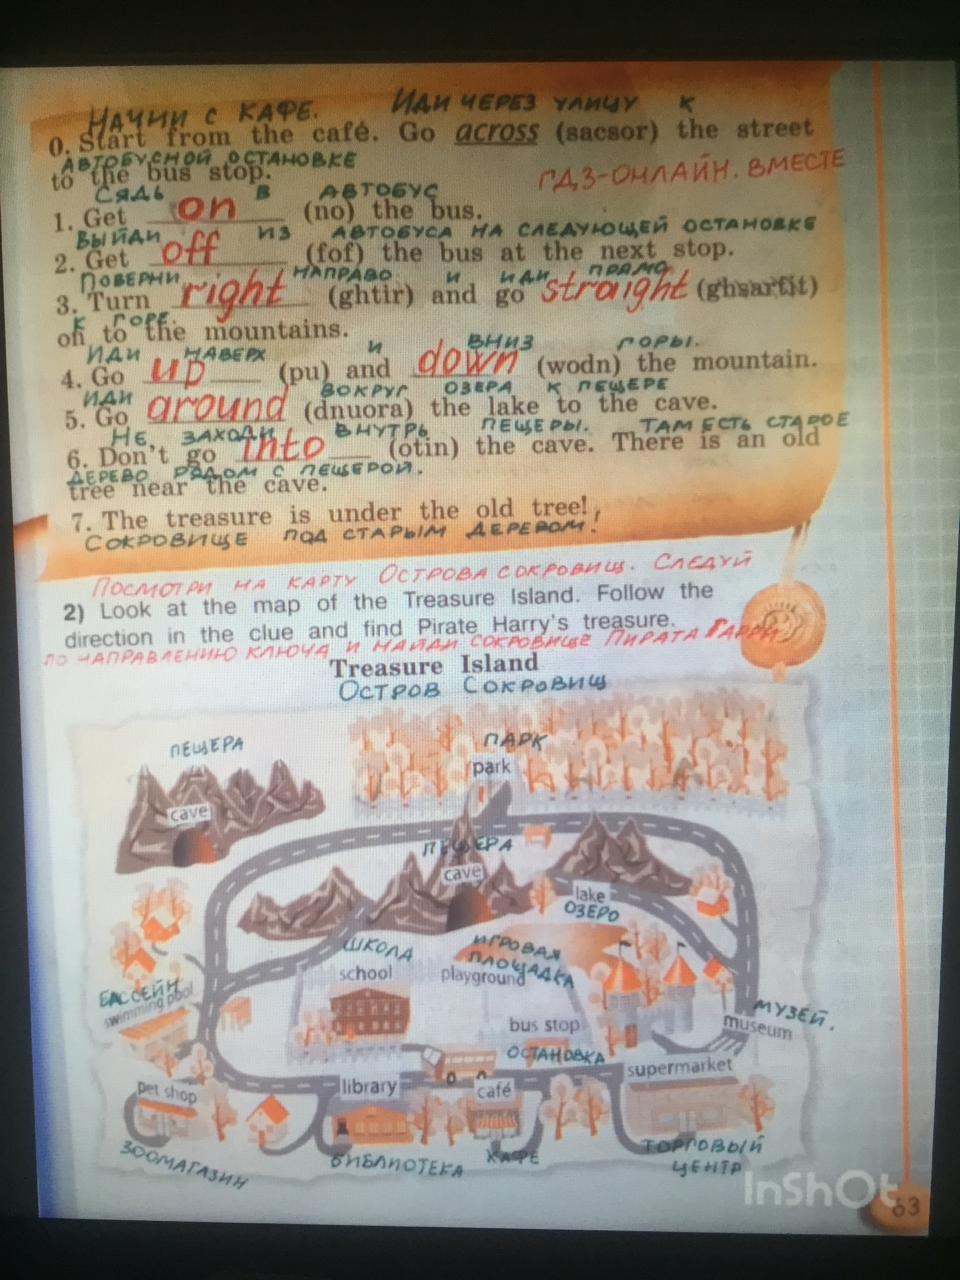 НАЧНИ С КАФЕ. ИДИ ЧЕРЕЗ УЛИЦУ К
0. Start from the café. Go across (sacsor) the street
АВТОБУСНОЙ ОСТАНОВКЕ
to the bus stop.
ГДЗ-ОНЛАЙН. ВМЕСТЕ
СЯДЬ В АВТОБУС
1. Get on (no) the bus.
ВЫЙДИ ИЗ АВТОБУСА НА СЛЕДУЮЩЕЙ ОСТАНОВКЕ
2. Get off (fof) the bus at the next stop.
ПОВЕРНИ НАПРАВО И ИДИ ПРЯМО
3. Turn right (ghtir) and go straight (ghsartit)
К ГОРЕ.
on to the mountains.
ИДИ НАВЕРХ И ВНИЗ ГОРЫ.
4. Go up (pu) and down (wodn) the mountain.
ИДИ ВОКРУГ ОЗЕРА К ПЕЩЕРЕ
5. Go around (dnuora) the lake to the cave.
НЕ ЗАХОДИ ВНУТРЬ ПЕЩЕРЫ. ТАМ ЕСТЬ СТАРОЕ
6. Don't go into (otin) the cave. There is an old
ДЕРЕВО РЯДОМ С ПЕЩЕРОЙ.
tree near the cave.
7. The treasure is under the old tree!
СОКРОВИЩЕ ПОД СТАРЫМ ДЕРЕВОМ!
ПОСМОТРИ НА КАРТУ ОСТРОВА СОКРОВИЩ. СЛЕДУЙ
2) Look at the map of the Treasure Island. Follow the
direction in the clue and find Pirate Harry's treasure.
ПО НАПРАВЛЕНИЮ КЛЮЧА И НАЙДИ СОКРОВИЩЕ ПИРАТА ГАРРИ
Treasure Island
ОСТРОВ СОКРОВИЩ
ПЕЩЕРА
ПАРК
park
cave
ПЕЩЕРА
cave
lake
ОЗЕРО
ШКОЛА
school
ИГРОВАЯ
ПЛОЩАДКА
playground
БАССЕЙН
swimming pool
МУЗЕЙ.
museum
bus stop
ОСТАНОВКА
supermarket
pet shop
library
café
ЗООМАГАЗИН
БИБЛИОТЕКА
КАФЕ
ТОРГОВЫЙ
ЦЕНТР
InShOt
63